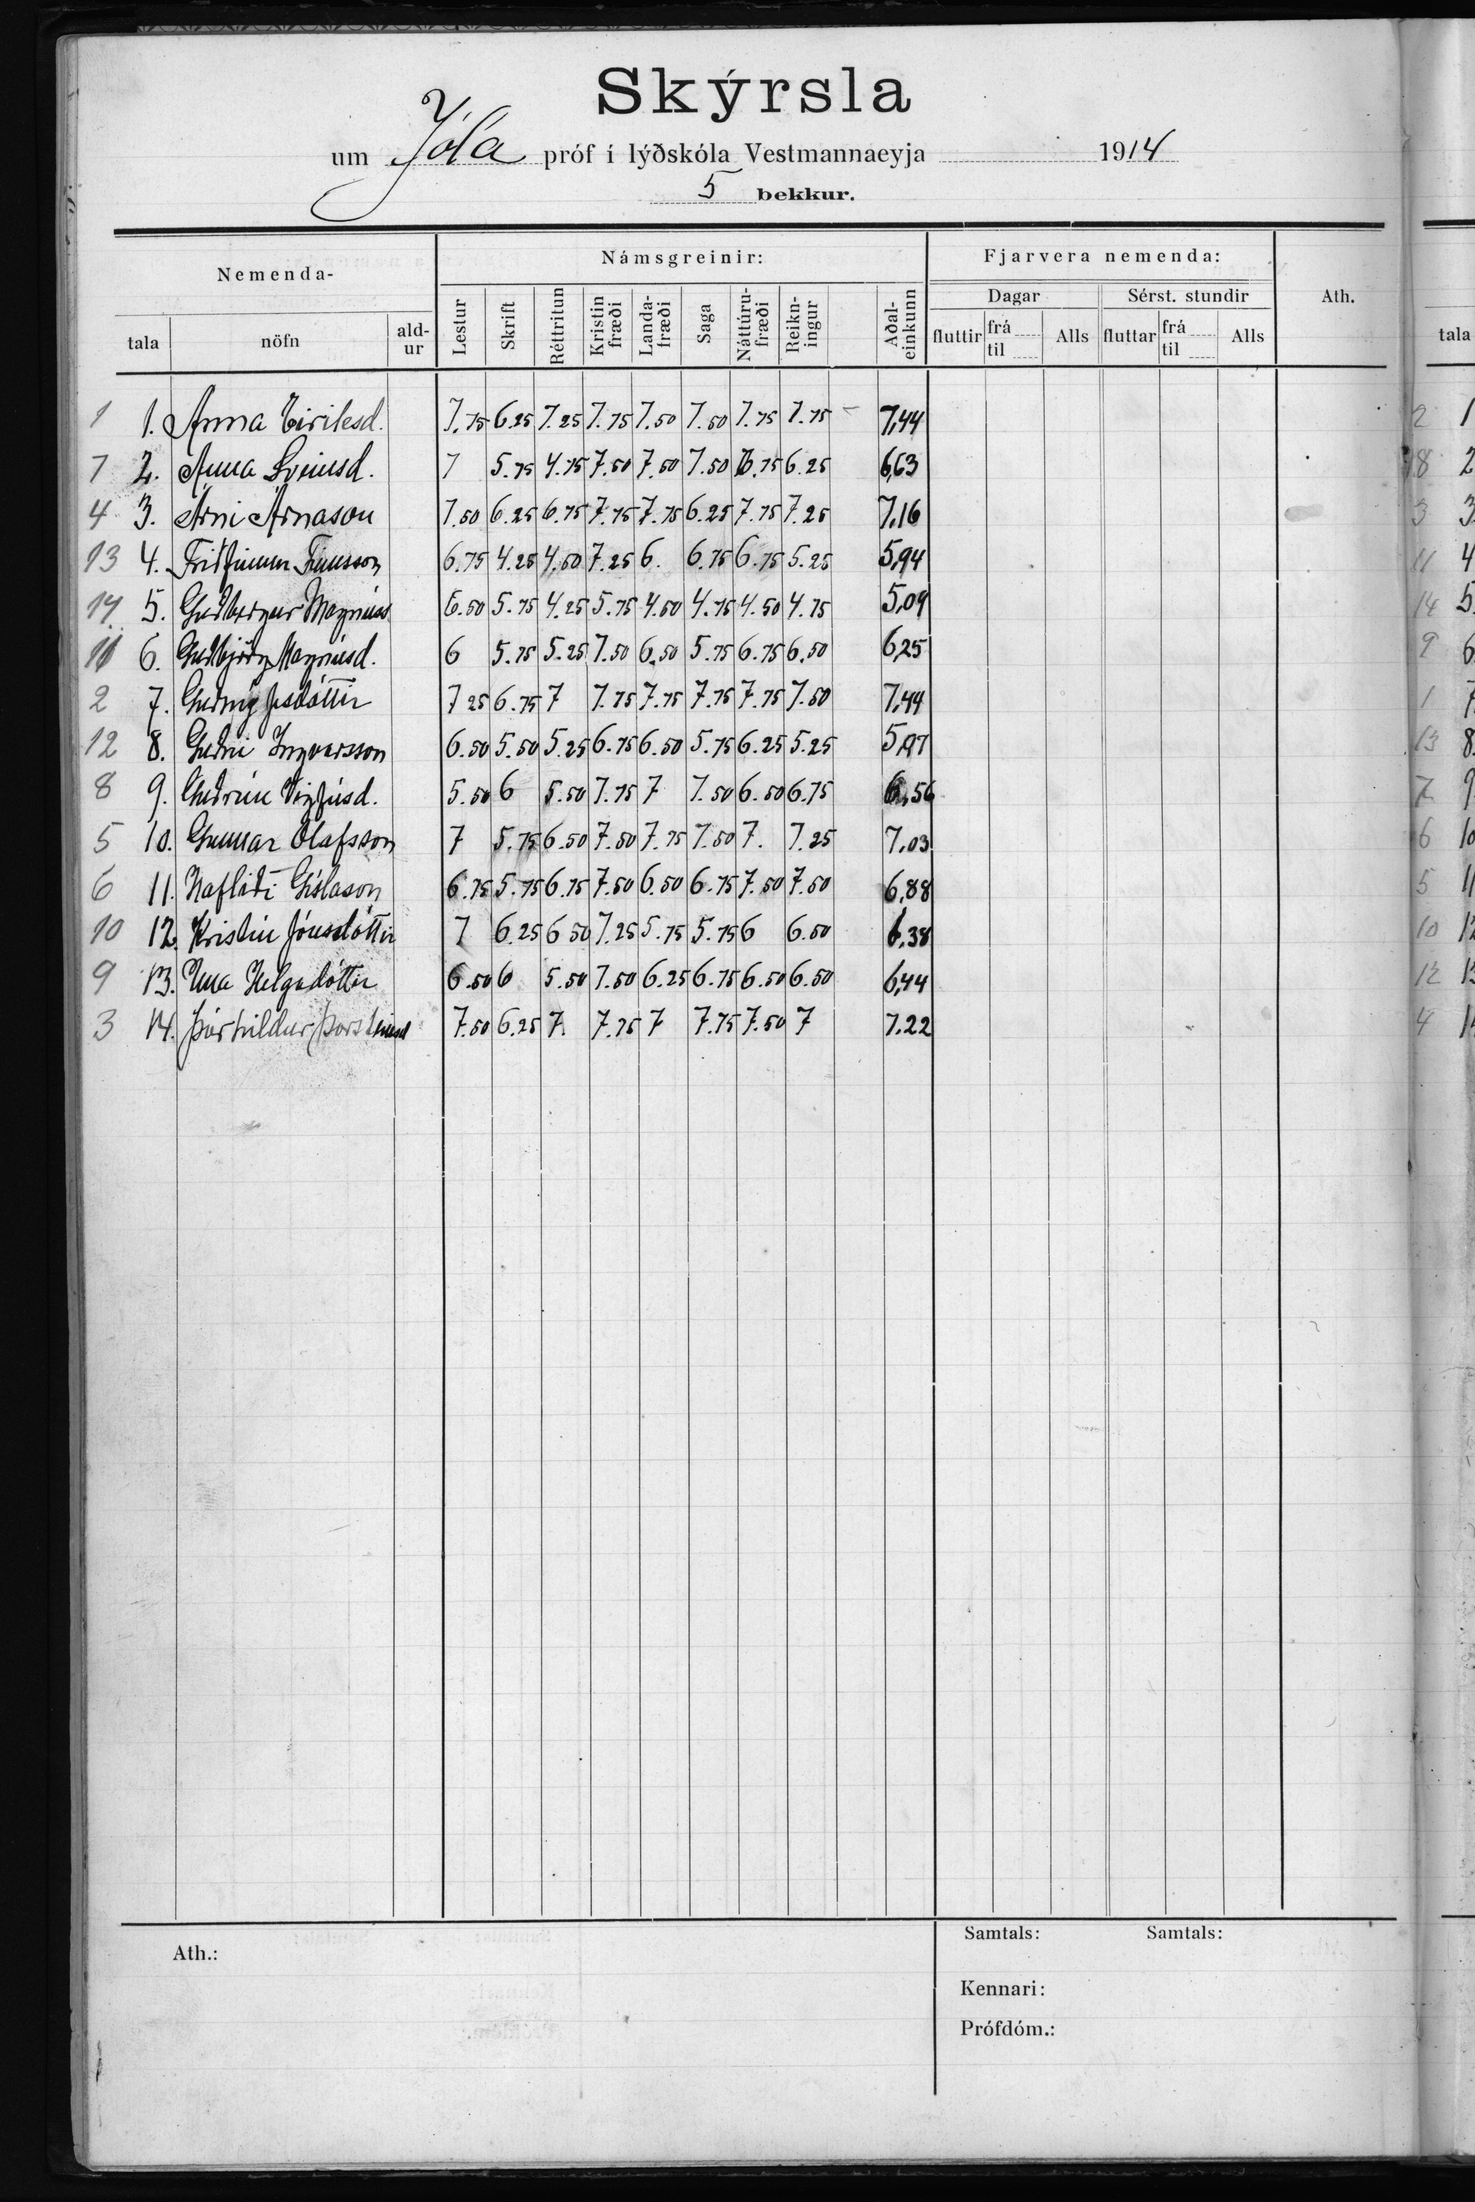 Skýrsla
um Jóla próf í lýðskóla Vestmannaeyja 1914
5 bekkur.
Nemenda- Námsgreinir: Fjarvera nemenda: Ath.
Dagar Sérst. stundir
tala nöfn ald-ur Lestur Skrift Réttritun Kristin fræði Landa-fræði Saga Náttúru-fræði Reikn-ingur Aðal-einkunn fluttir frá til Alls fluttar frá til Alls
1 1. Anna Eiriksd. 7.75 6.25 7.25 7.75 7.50 7.50 7.75 7.75 7,44
7 2. Anna Sveinsd. 7 5.75 4.75 7.50 7.50 7.50 6.75 6.25 6,63
4 3. Árni Árnason 7.50 6.25 6.75 7.75 7.75 6.25 7.75 7.25 7,16
13 4. Friðfinnur Finnsson 6.75 4.25 4.50 7.25 6. 6.75 6.75 5.25 5,94
14 5. Guðbergur Magnúss 6.50 5.75 4.25 5.75 4.50 4.75 4.50 4.75 5,09
11 6. Guðbjörg Magnúsd. 6 5.75 5.25 7.50 6.50 5.75 6.75 6.50 6,25
2 7. Guðný Jesdóttir 7 25 6.75 7 7.75 7.75 7.75 7.75 7.50 7,44
12 8. Guðni Ingvarsson 6.50 5.50 5.25 6.75 6.50 5.75 6.25 5.25 5,97
8 9. Guðrún Vigfúsd. 5.50 6 5.50 7.75 7 7.50 6.50 6.75 6,56
5 10. Gunnar Ólafsson 7 5.75 6.50 7.50 7.75 7.50 7. 7.25 7,03
6 11. Hafliði Gíslason 6.75 5.75 6.75 7.50 6.50 6.75 7.50 7.50 6,88
10 12. Kristín Jónsdóttir 7 6.25 6 50 7.25 5.75 5.75 6 6.50 6,38
9 13. Una Helgadóttir 6.50 6 5.50 7.50 6.25 6.75 6.50 6.50 6,44
3 14. Þórhildur Þorsteinsd 7.50 6.25 7. 7.75 7 7.75 7.50 7 7.22
Ath.: Samtals: Samtals:
Kennari:
Prófdóm.:
tala
2 1
8 2
3 3
11 4
14 5.
9 6
1 7
13 8.
7 9
6 10
5 11
10 12
12 13
4